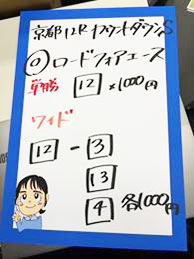 京都12RカウントダウンS
◎ロードフォアエース
単勝 12 ×1000円
ワイド
12 - 3
13
4 各1000円